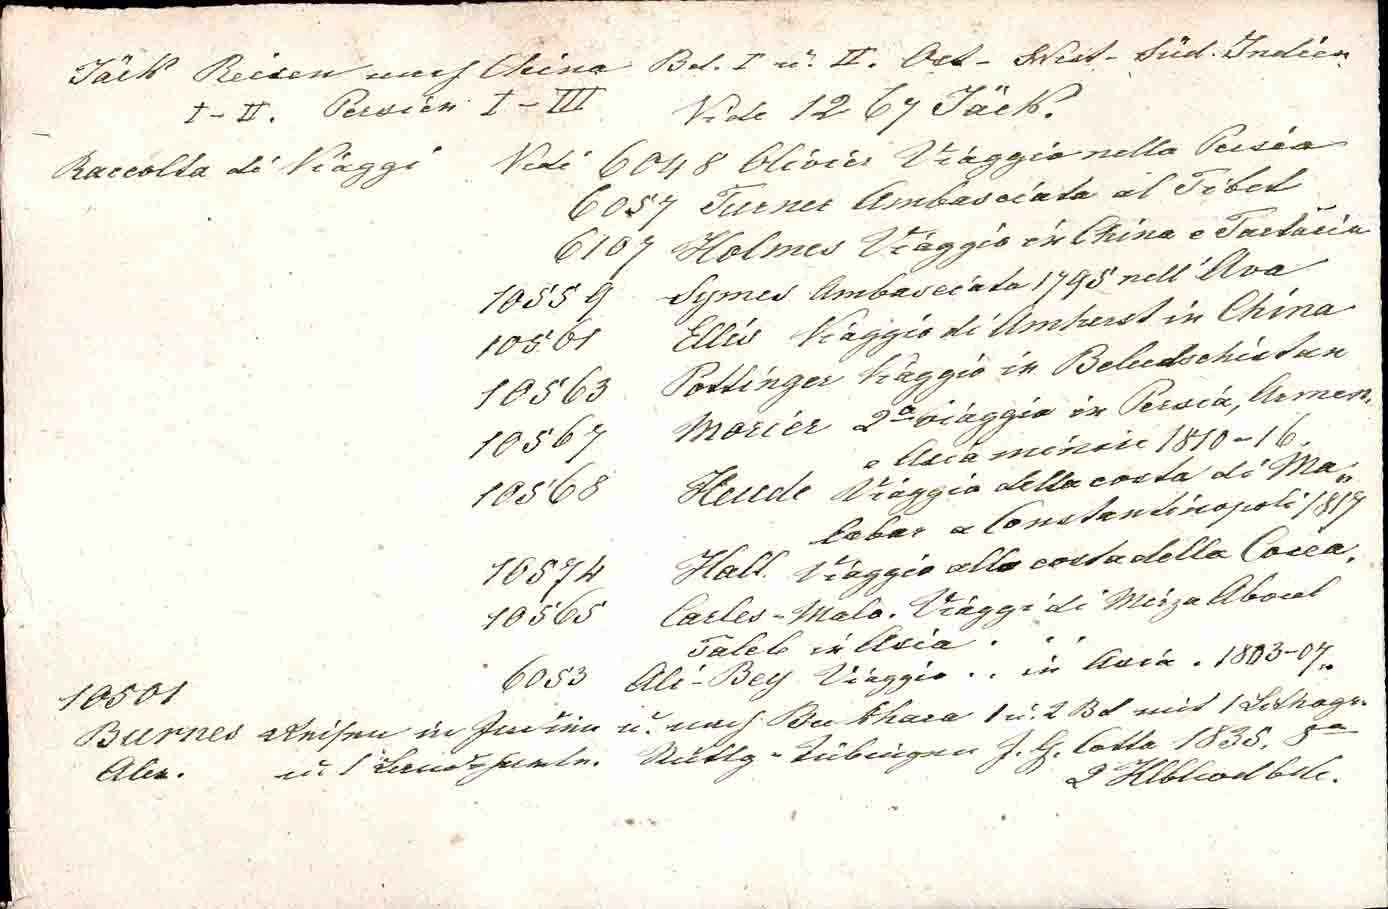 Jäck Reisen nach China Bd. I u. II. Ost- West- Süd. Indien
I-II. Persien I-III Vide 1267 Jäck.
Raccolta di Viaggi Vedi 6048 Olivier Viaggio nella Persia
6057 Turner Ambasciata al Tibet
6107 Holmes Viaggio in China e Tartaria
10559 Symes Ambasciata 1795 nell' Ava
10561 Ellis Viaggio di Amherst in China
10563 Pottinger Viaggio in Beludschistan
10567 Morier 2ª viaggio in Persia, Armen.
e Asia minore 1810-16.
10568 Heude Viaggio della costa di Ma„
labar a Constantinopoli 1817
10574 Hall. Viaggio alla costa della Corea.
10565 Carles-Malo. Viaggi di Mirza Aboul
Taleb in Asia . . .
6053 Ali-Bey Viaggio .. in Asia. 1803-07.
10501
Burnes Reisen in Indien u. nach Bukhara 1 u. 2 Bd mit 1 Lithogr.
Alex. u 1 Stuttg-Tübingen J. G. Cotta 1835. 8º
2 Hlblwdbde.